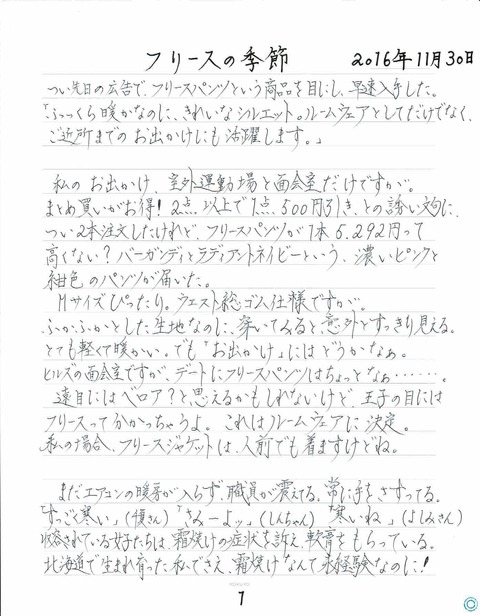 フリースの季節　2016年11月30日
つい先日の広告で、フリースパンツという商品を目にし、早速入手した。
「ふっくら暖かなのに、きれいなシルエット。ルームウェアとしてだけでなく、
ご近所までのお出かけにも活躍します。」
私のお出かけ、室外運動場と面会室だけですが。
まとめ買いがお得！2点以上で1点500円引き、との誘い文句に、
つい2本注文したけれど、フリースパンツが1本5.292円って
高くない？バーガンディとラディアントネイビーという、濃いピンクと
紺色のパンツが届いた。
Mサイズぴったり。ウエスト総ゴム仕様ですが。
ふかふかとした生地なのに、穿いてみると意外とすっきり見える。
とても軽くて暖かい。でも「お出かけ」にはどうかなぁ。
ヒルズの面会室ですが、デートにフリースパンツはちょっとなぁ……。
遠目にはベロア？と思えるかもしれないけど、王子の目には
フリースって分かっちゃうよ。これはルームウェアに決定。
私の場合、フリースジャケットは、人前でも着ますけどね。
まだエアコンの暖房が入らず、職員が震えてる。常に手をさすってる。
「すっごく寒い」（順さん）「さみーよッ」（しんちゃん）「寒いね」（よしみさん）
収容されている女子たちは、霜焼けの症状を訴え、軟膏をもらっている。
北海道で生まれ育った私でさえ、霜焼けなんて未経験なのに！
KOKUYO
1